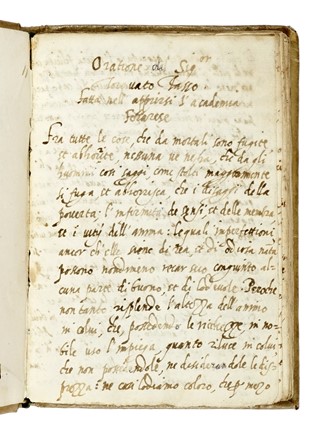 Oratione del Sig.or
Torquato Tasso
Fatta nell' apprirsi l'academia
Ferarese
Fra tutte le cose, che da mortali sono fugite,
et abhorite, nessuna ve ne ha, che da gli
huomini così saggi, come stolti maggiormente
si fuga et abhorisca, che i disaggi della
povertà: l'infirmità de sensi, et delle membra
et i vitij dell' animo. le quali imperfettioni
ancor ch'elle siano di rea, et di odiosa natura
posono nondimeno recar seco congiunto al-
cuna parte di buono, et di lodevole. Perche
non tanto risplende l'altezza dell' animo
in colui, che, possedendo le richezze in no-
bile uso l'impiega, quanto riluce in colui
che non possedendole, ne desiderandole le dis-
prezza: ne così lodiamo coloro, che